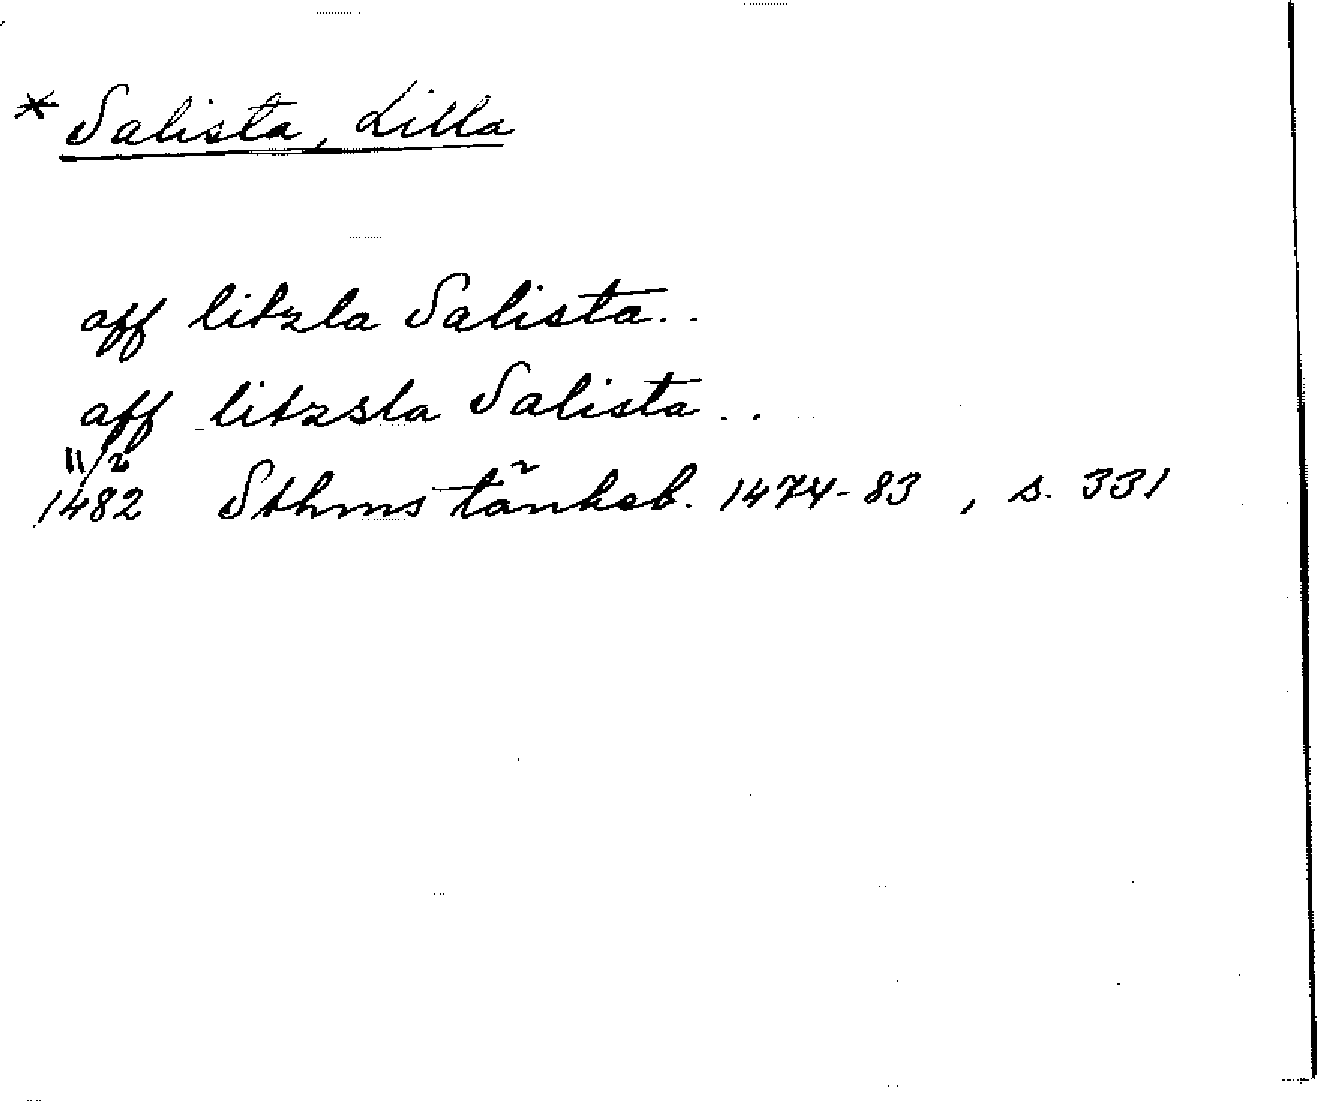 * Salista, Lilla
aff litzla Salista..
aff litzsla Salista..
11/2
1482 Sthms tänkeb. 1474-83, s. 331